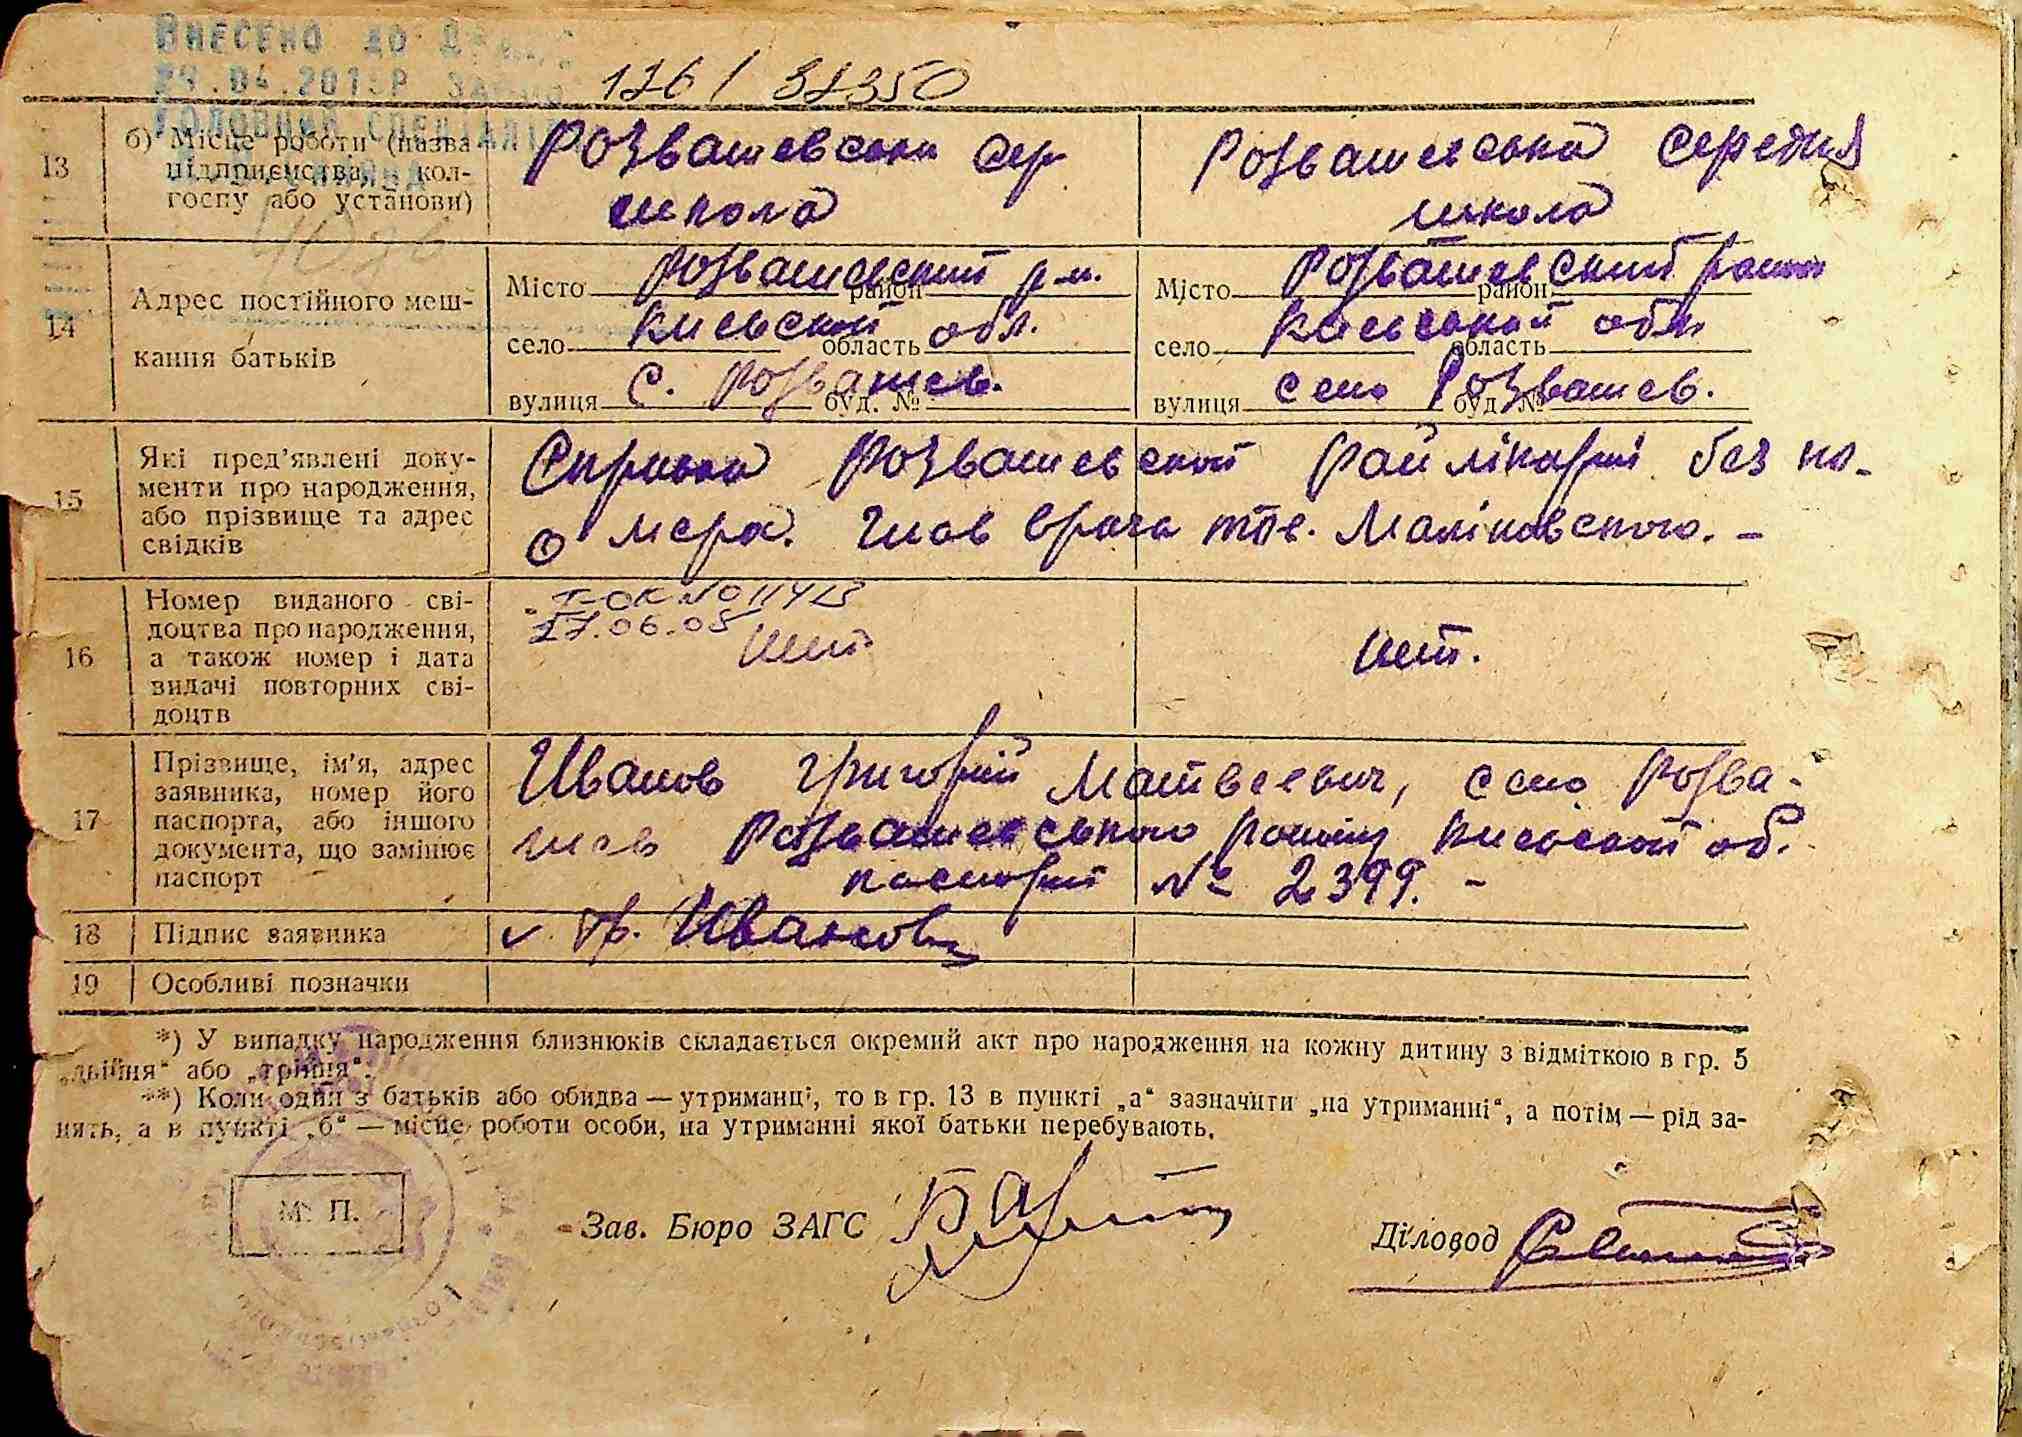 Внесено до
126 / 32350
13 б) Місце роботи (назва підприємства, кол-
госпу або установи)
Розважевська сер
школа
Розважевська середня
школа
14 Адрес постійного меш-
кання батьків
Місто Розважевский р-н. район
село Киевской область обл.
вулиця с. Розважев. буд. №
Місто Розважевский район
село Киевской область обл
вулиця село Розважев. буд. №
15 Які пред'явлені доку-
менти про народження,
або прізвище та адрес
свідків
Справка Розважевской райлікарні без но-
мера. Глав врача тов. Маліновского. –
16 Номер виданого сві-
доцтва про народження,
а також номер і дата
видачі повторних сві-
доцтв
27.06.08
нет.
нет.
17 Прізвище, ім'я, адрес
заявника, номер його
паспорта, або іншого
документа, що замінює
паспорт
Иванов Григорій Матвеевич, село Розва-
жев Розважевського району Киевской об.
паспорт № 2399. –
18 Підпис заявника
Гр. Иванов
19 Особливі позначки
*) У випадку народження близнюків складається окремий акт про народження на кожну дитину з відміткою в гр. 5
„двійня" або „трійня".
**) Коли один з батьків або обидва — утриманці, то в гр. 13 в пункті „а" зазначити „на утриманні", а потім — рід за-
нять, а в пункті „б" — місце роботи особи, на утриманні якої батьки перебувають.
М. П.
Зав. Бюро ЗАГС
Діловод